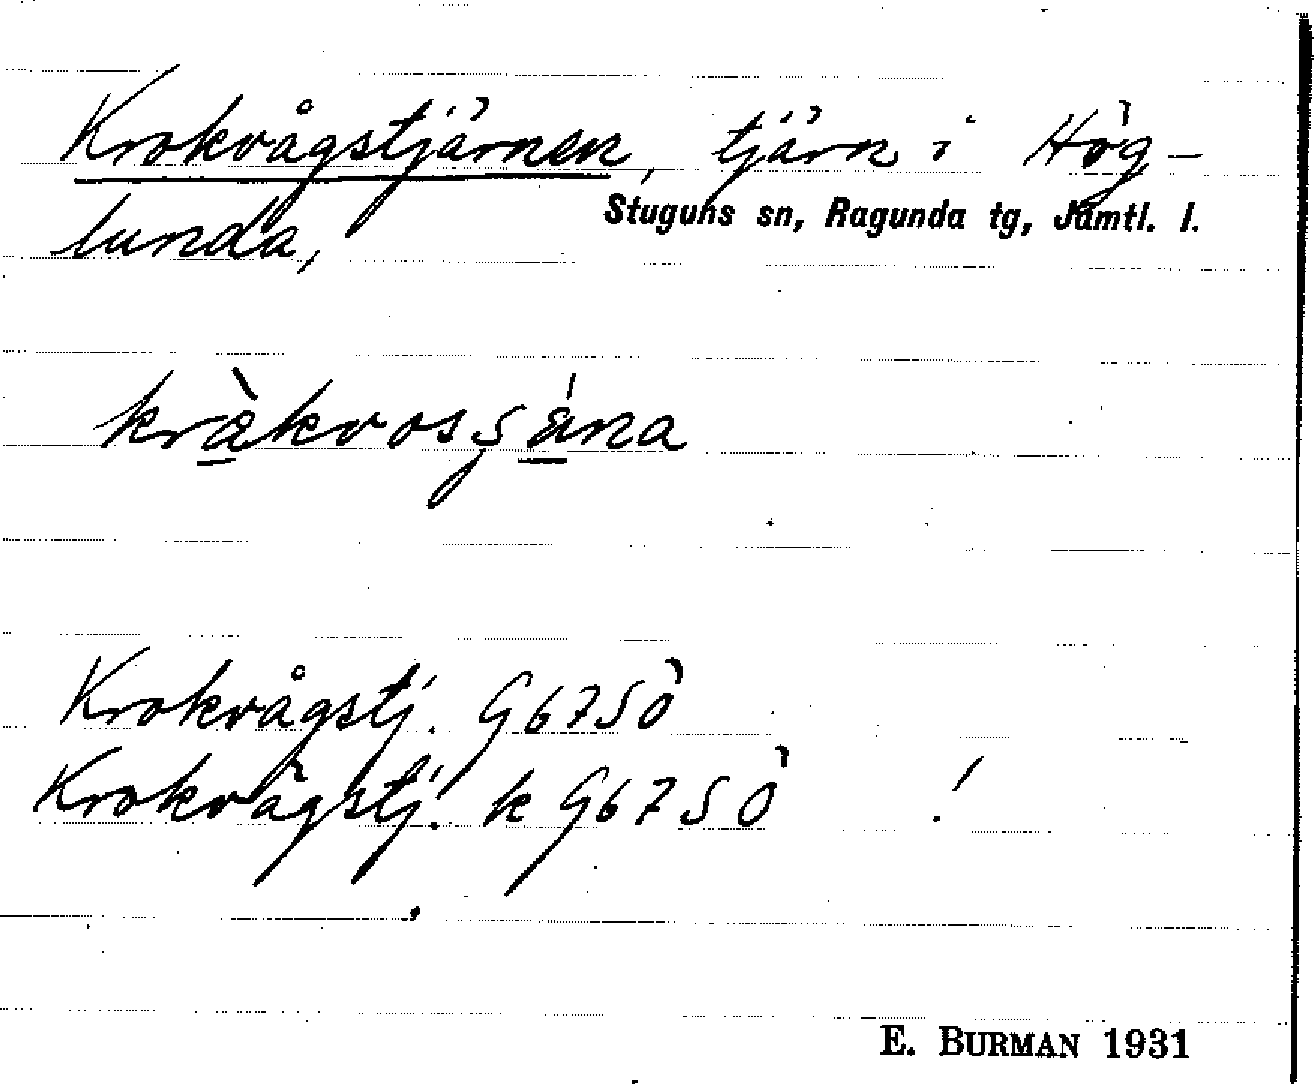 Krokvågstjärnen, tjärn i Hög-
Stuguns sn, Ragunda tg, Jämtl. l.
lunda,
kràkvosʂána
Krokvågstj. G67SÖ
Krokvågstj. k G67SÖ !
E. BURMAN 1931